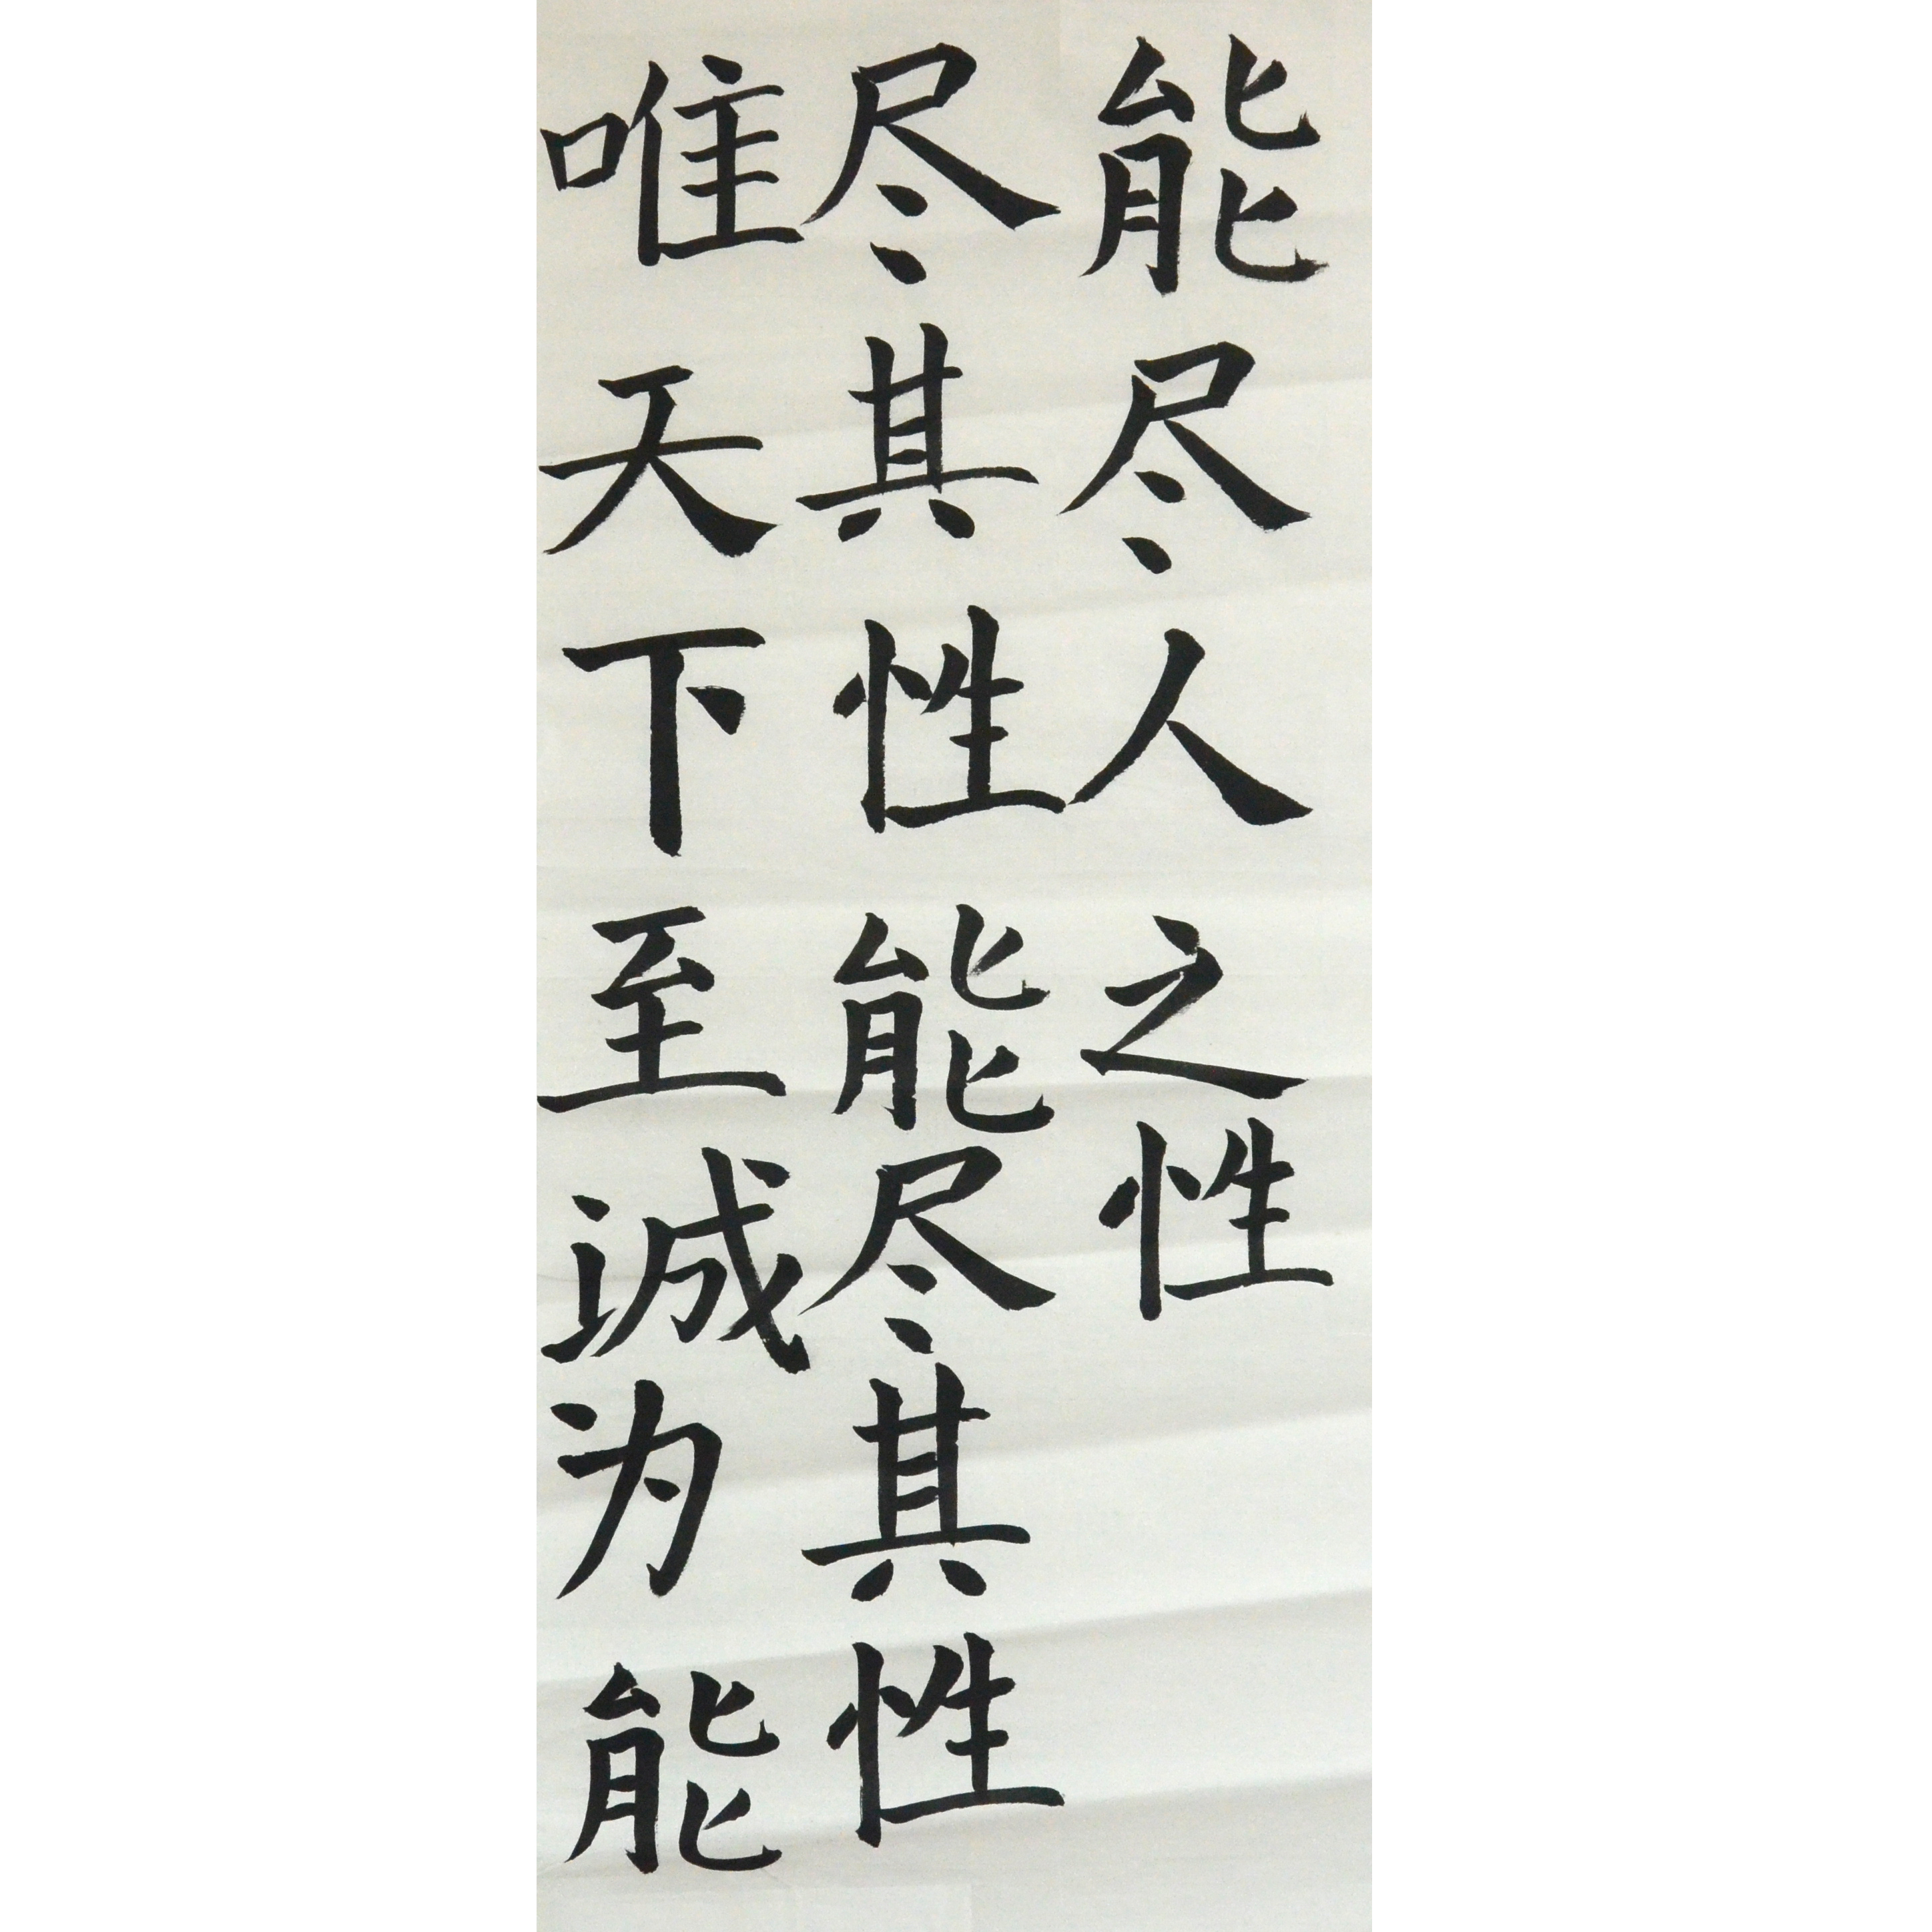 唯天下至诚为能
尽其性能尽其性
能尽人之性